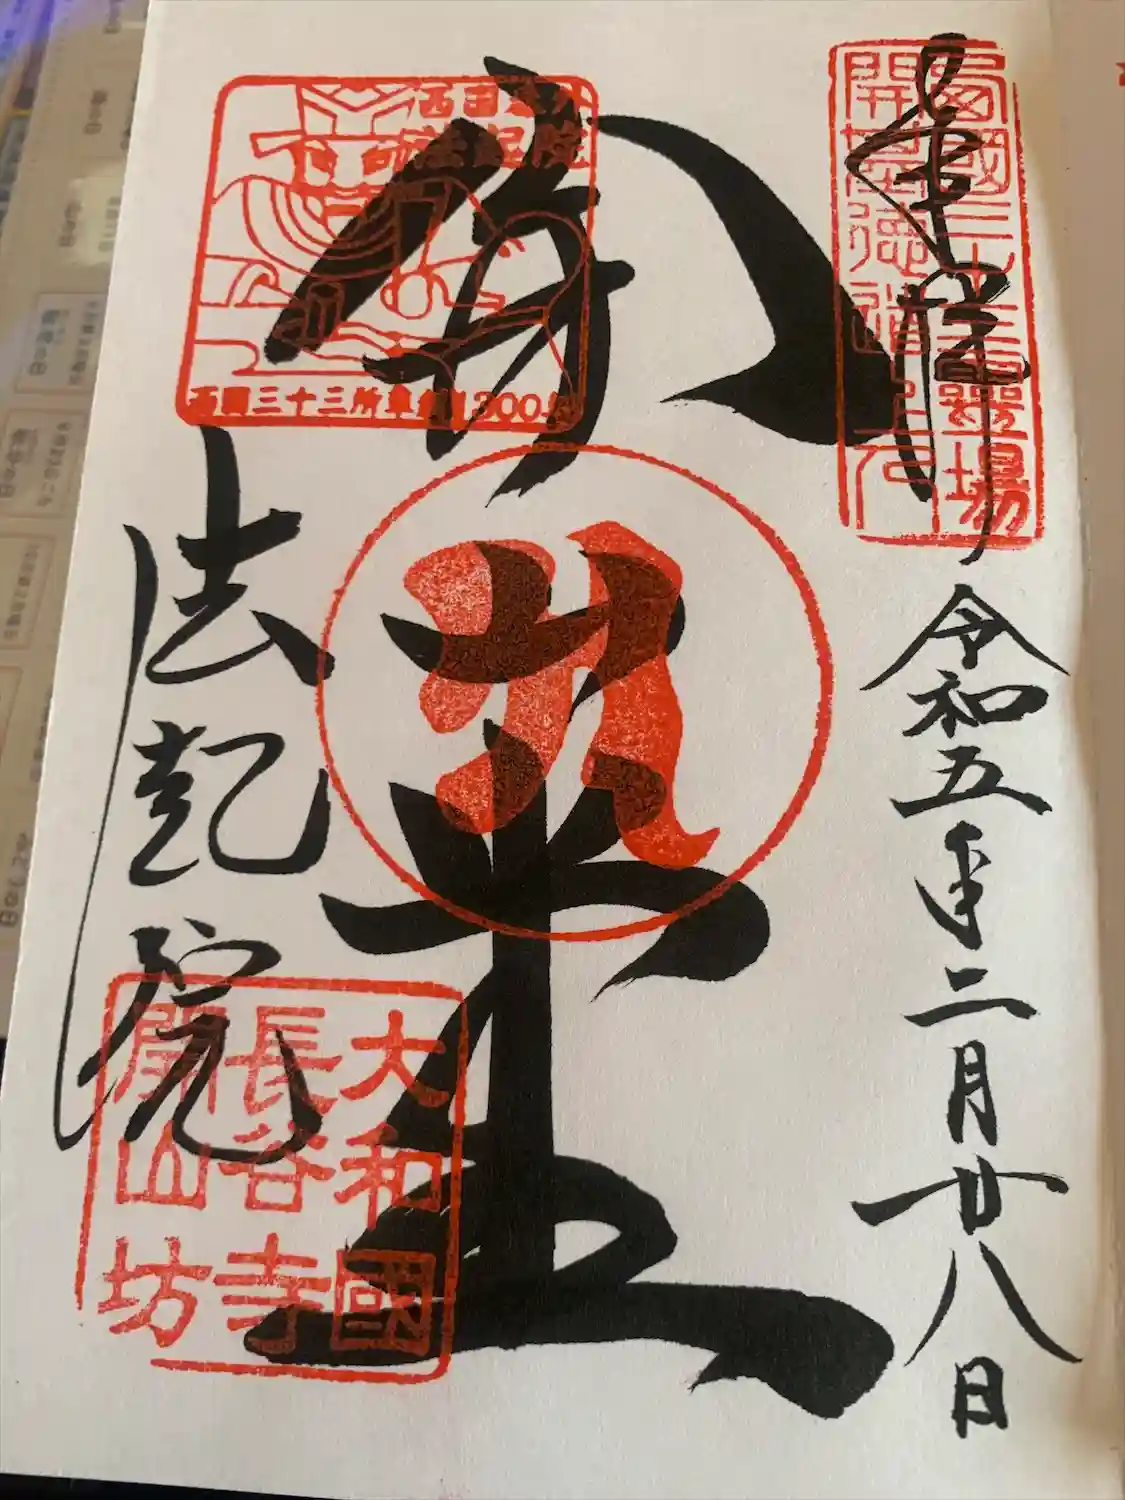 奉拝
令和五年二月廿八日
西國三十三霊場
開基徳道上人
法起院
西国三十三所草創1300年
大和國
長谷寺
開山坊